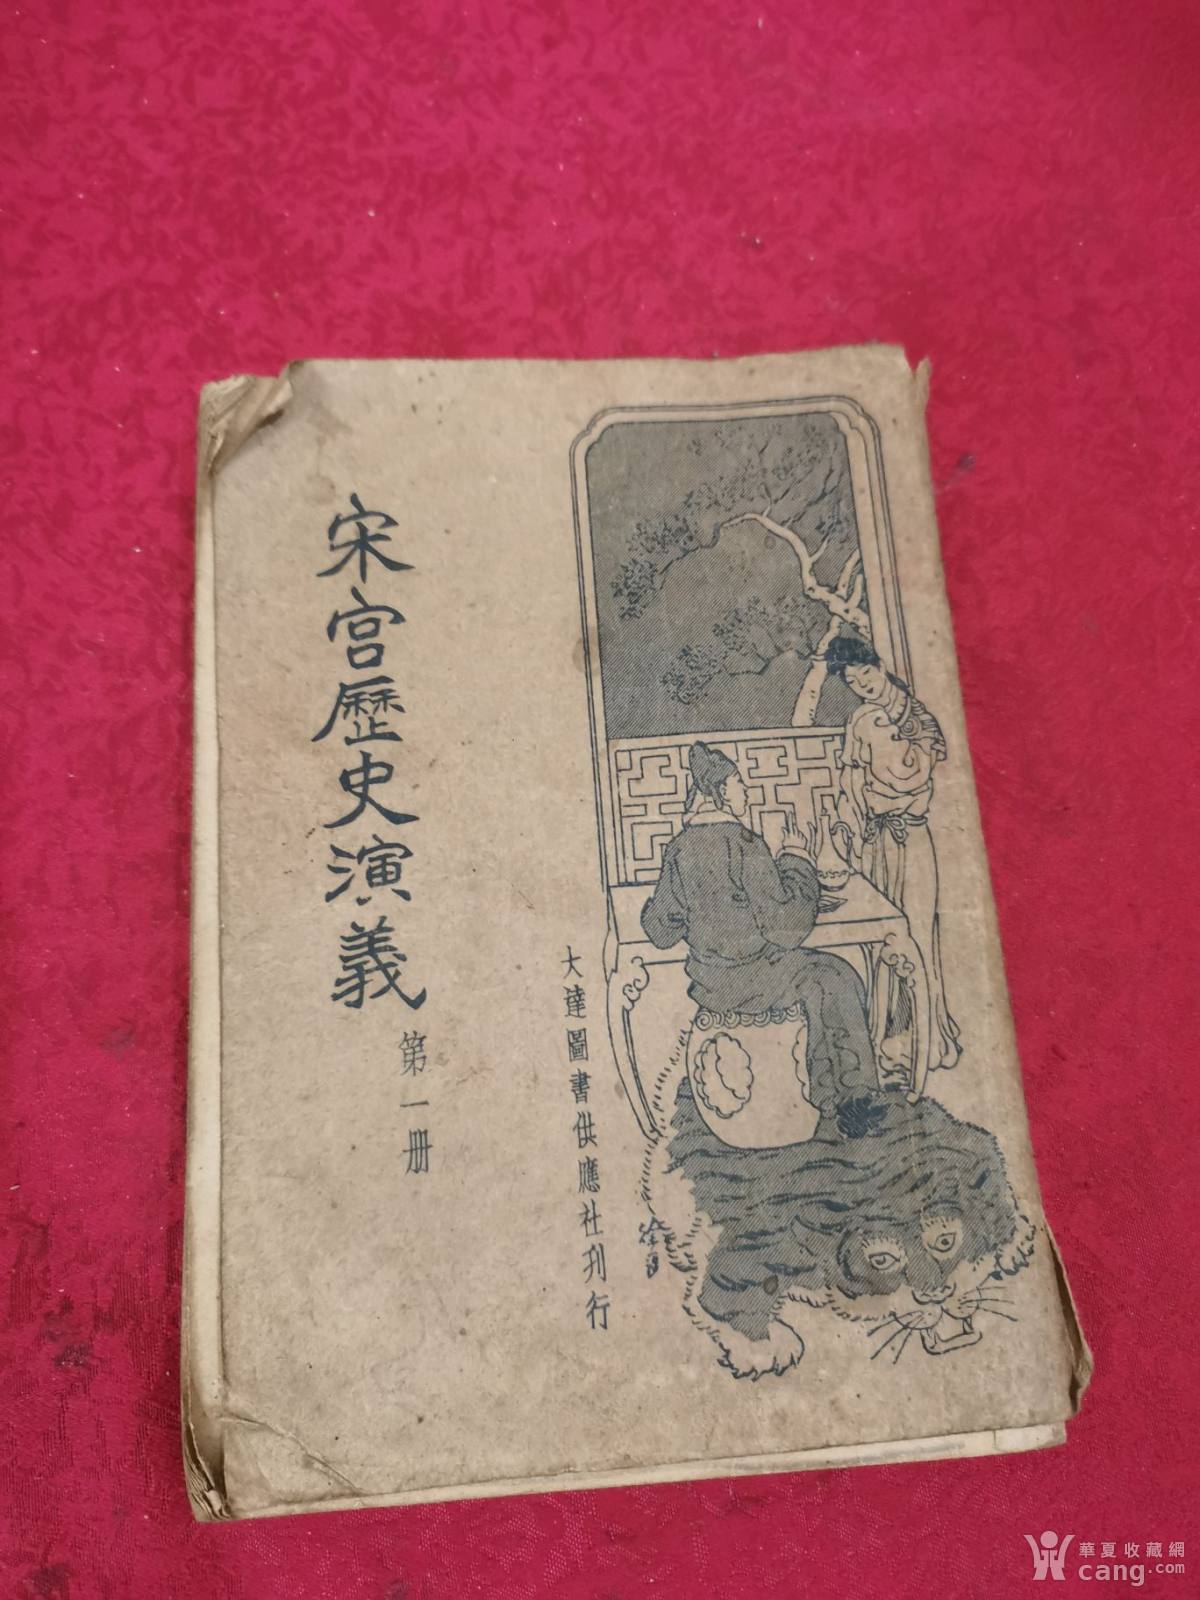 宋宮歷史演義
第一冊
大達圖書供應社刊行
華夏收藏網
cang.com